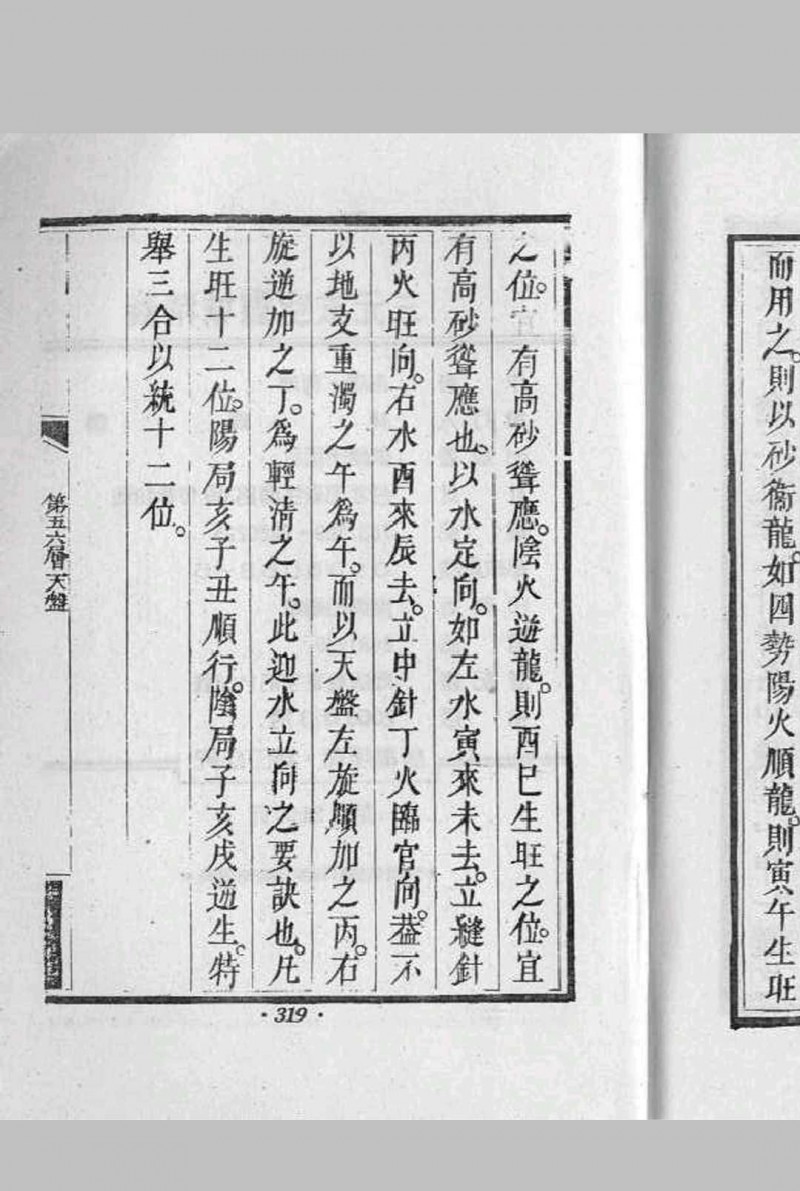 而用之。則以砂衞龍。如四勢陽火順龍。則寅午生旺
之位。宜有高砂聳應。陰火逆龍。則酉巳生旺之位。宜
有高砂聳應也。以水定向。如左水寅來未去。立縫針
丙火旺向。右水酉來辰去。立中針丁火臨官向。葢不
以地支重濁之午爲午。而以天盤左旋順加之丙。右
旋逆加之丁。爲輕清之午。此迎水立向之要訣也。凡
生旺十二位。陽局亥子丑順行。陰局子亥戌逆生。特
舉三合以統十二位。
第五六層天盤
·319·